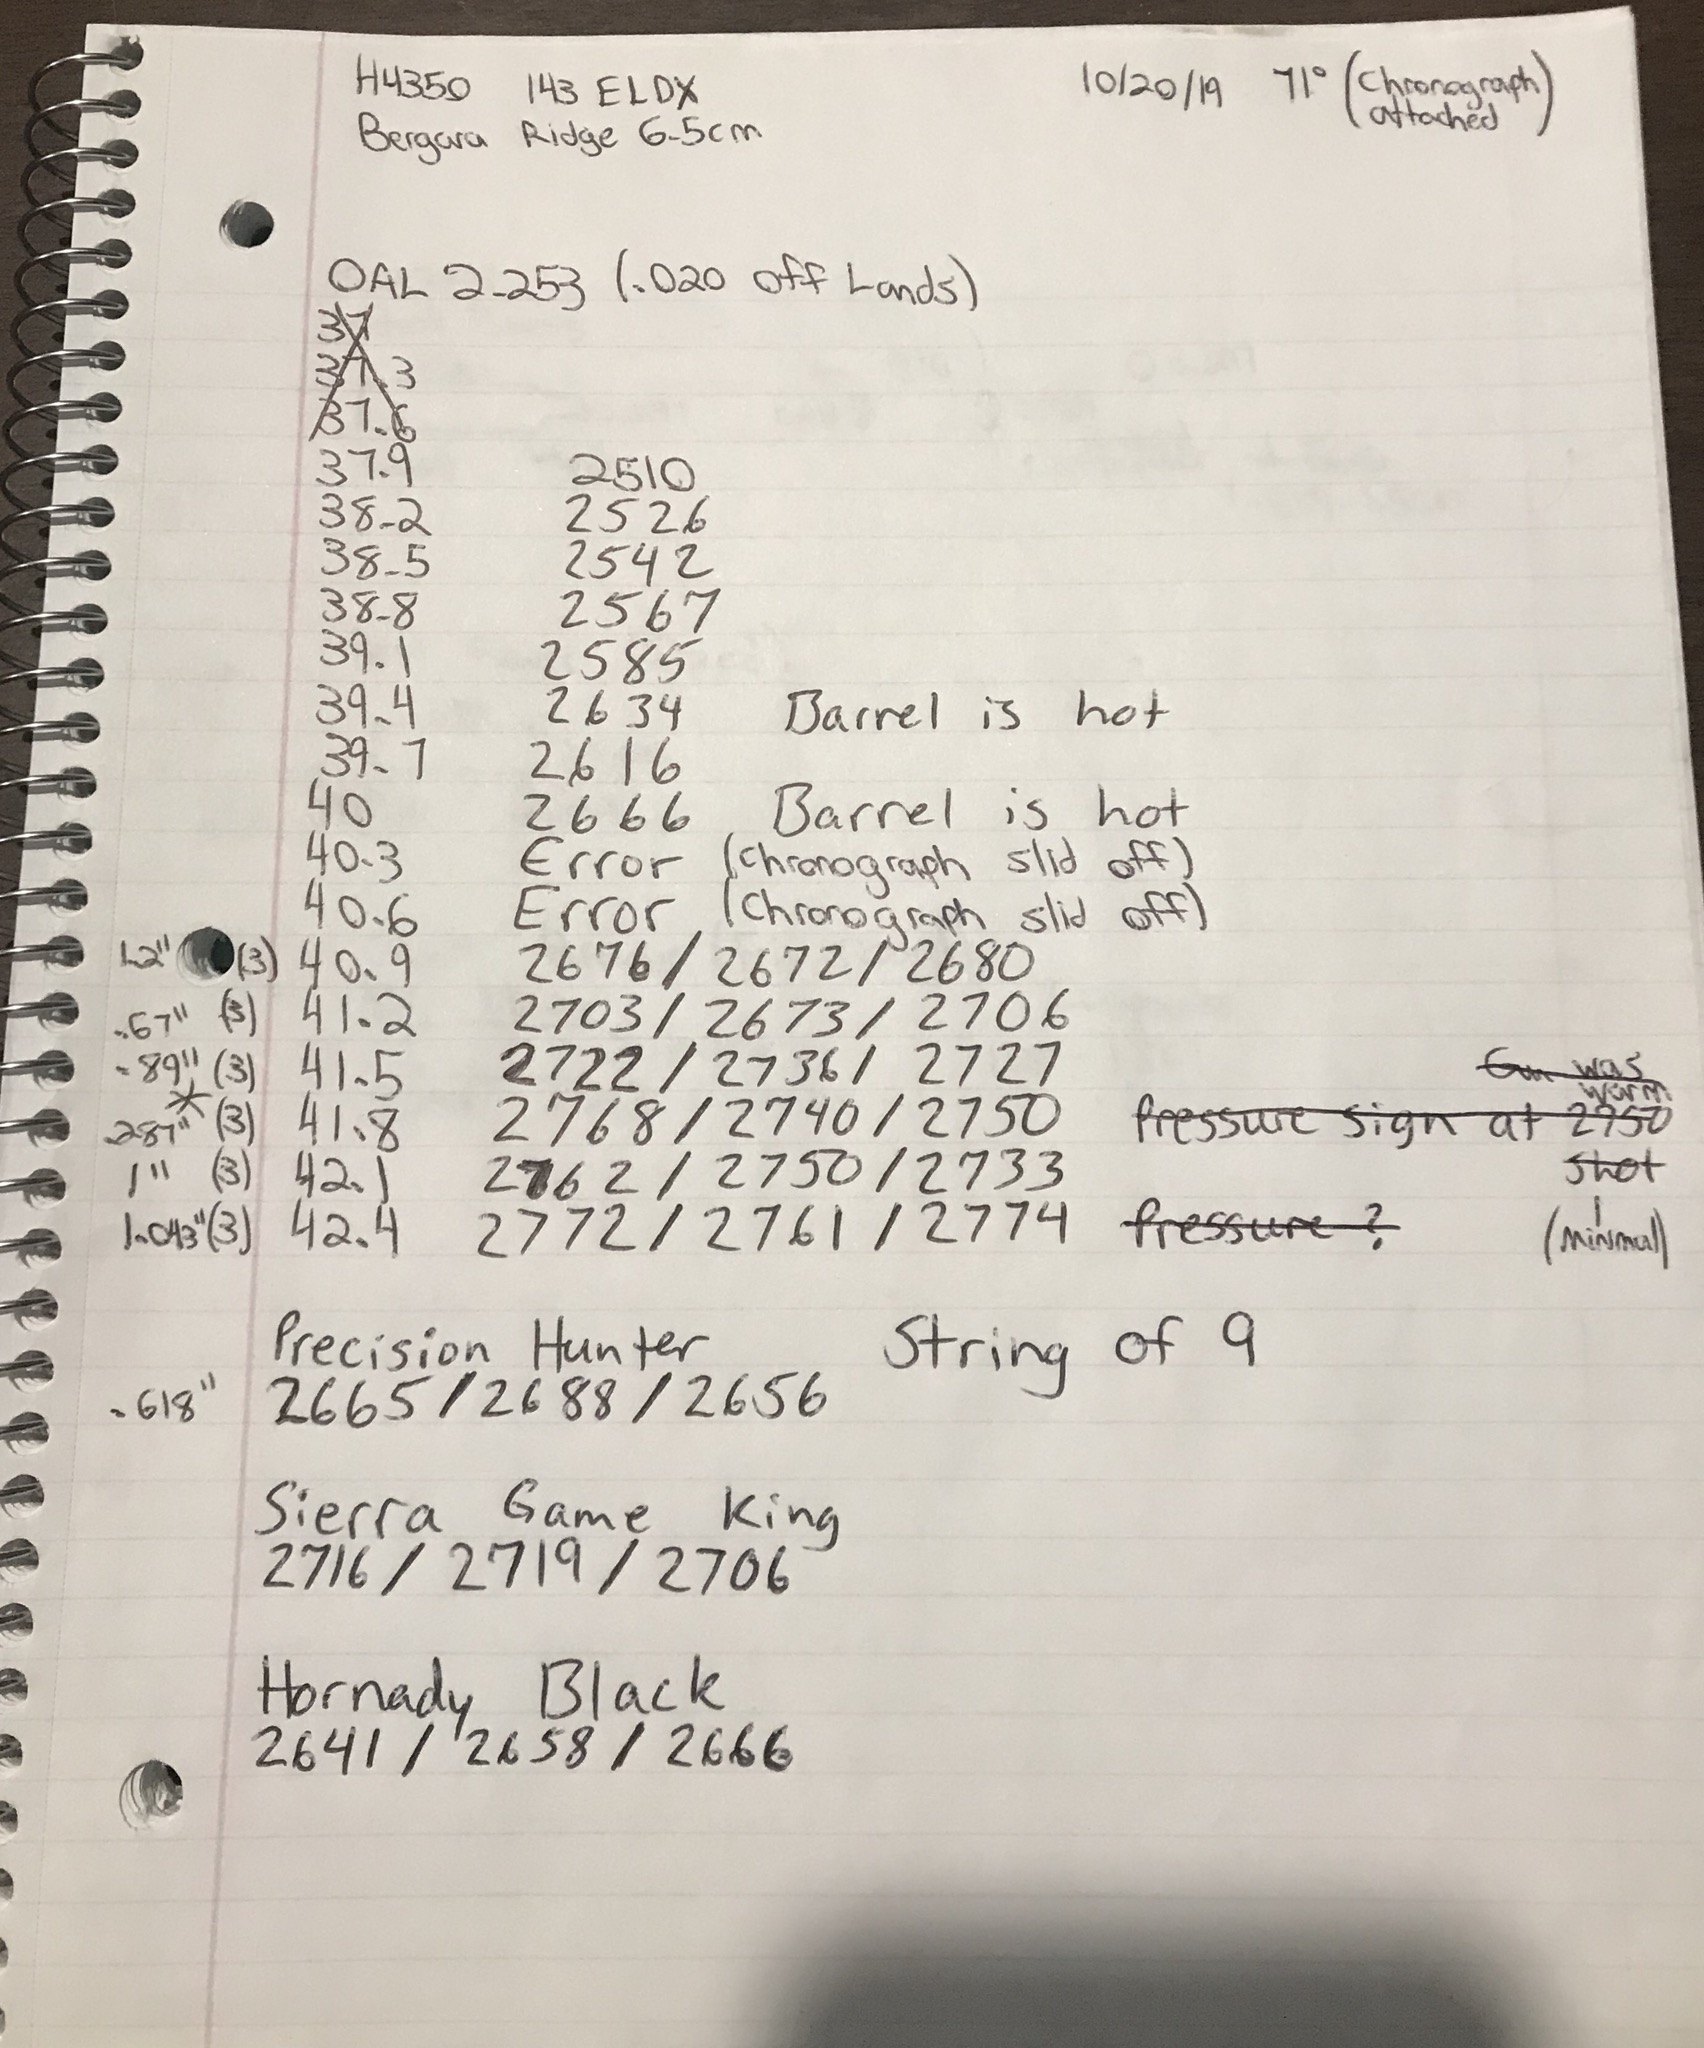 H4350 143 ELDX 10/20/19 71° (Chronograph attached)
Bergara Ridge 6-5cm
OAL 2-253 (.020 off Lands)
37
37.3
37.6
37.9 2510
38-2 2526
38-5 2542
38-8 2567
39.1 2585
39.4 2634 Barrel is hot
39-7 2616
40 2666 Barrel is hot
40.3 Error (Chronograph slid off)
40.6 Error (Chronograph slid off)
1.2" (3) 40.9 2676/2672/2680
.67" (3) 41.2 2703/2673/2706
.89" (3) 41.5 2722/2736/2727
Gun was warm
.287" * (3) 41.8 2768/2740/2750 Pressure sign at 2750 shot
1" (3) 42.1 2762/2750/2733
1.043" (3) 42.4 2772/2761/2774 Pressure? (minimal)
Precision Hunter String of 9
.618" 2665/2688/2656
Sierra Game King
2716/2719/2706
Hornady Black
2641/2658/2666